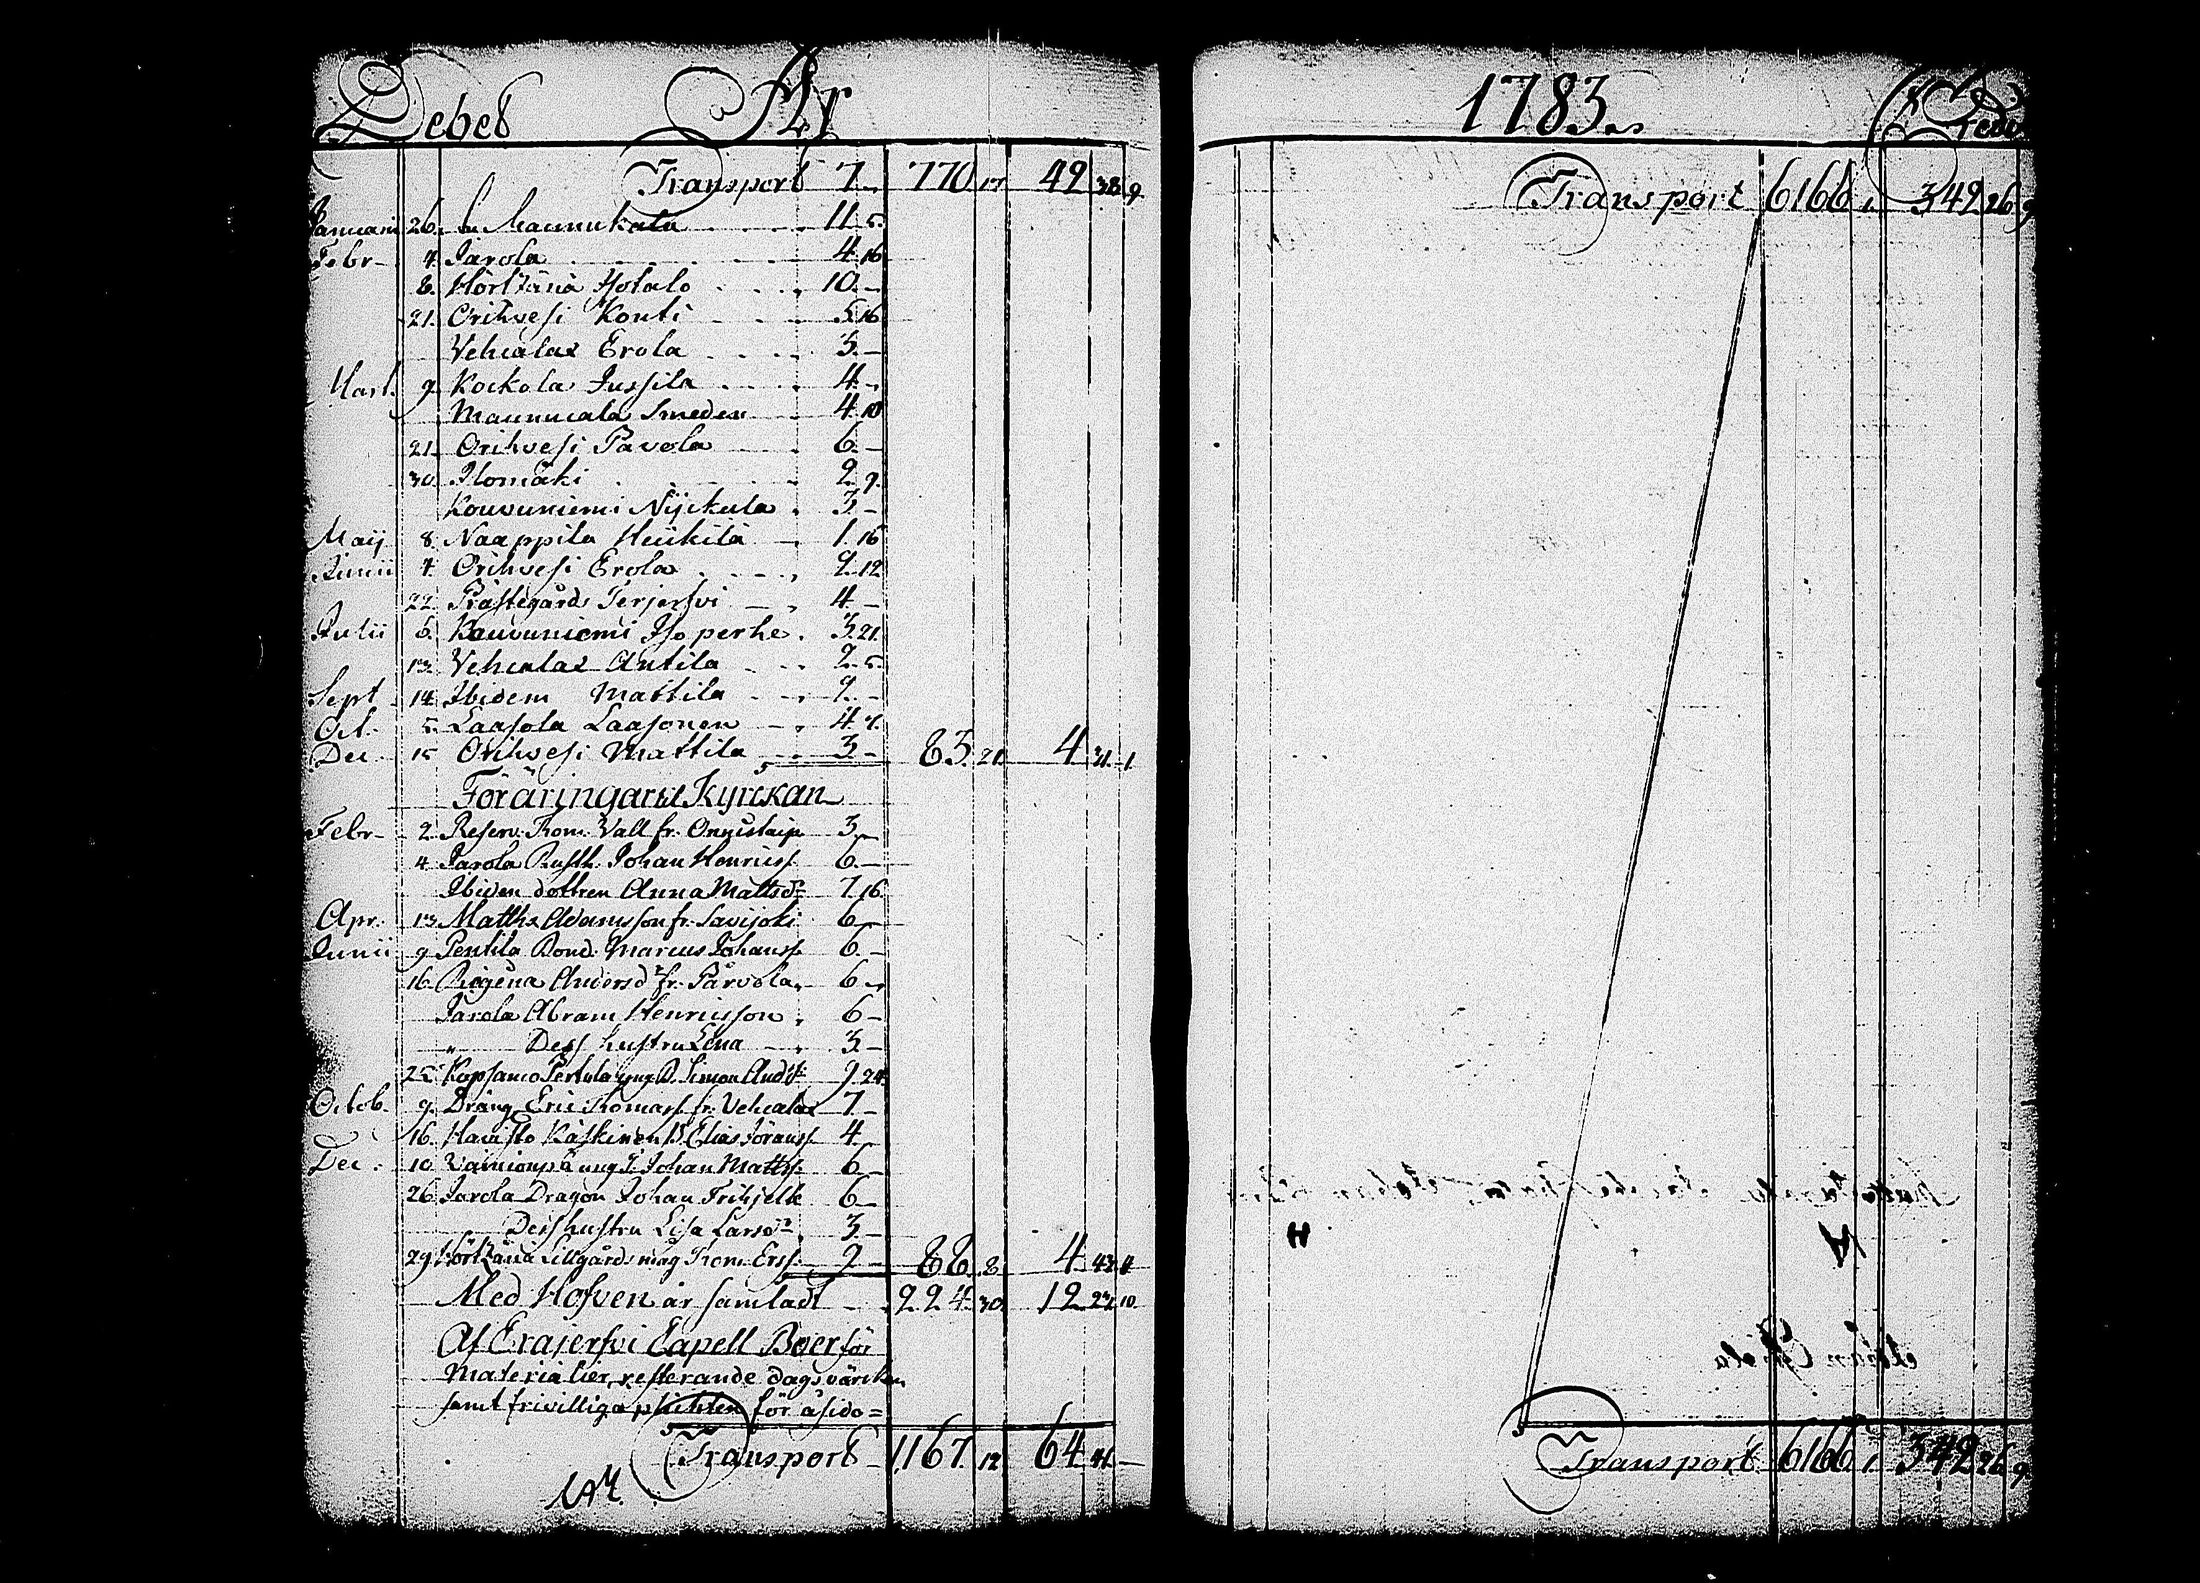 Debet År
Transport 7 — 770 17 42 38 9
Januarii 26. Maunukala 11. 5.
Febr 4. Jarola 4 16
8. Hörtzänä Hotalo 10. —
21. Orihvesi Konti 5. 16
Vehcalax Erola 3. —
Mart. 9. Kockola Jussila 4. —
Maunucala Smeden 4. 10
21. Orihvesi Pavola 6. —
30. Ilomäki 2. 9.
Kouvuniemi Nijckula 3. —
Maij 8. Naappila Heickilä 1. 16
Junii 4. Orihvesi Erola 2. 12
22. Prästegårds Terjerfvi 4. —
Julii 6. Kouvuniemi Iso perhe 3. 21.
13. Vehcalax Antila 2. 5.
Sept 14. Ibidem Mattila 9. —
Oct. 5. Laasola Laasonen 4. 7.
Dec 15 Orihvesi Mattila 3. — 83. 21 4 31. 1.
Föräringar til Kyrckan
Febr 2. Reserv. Thom. Vall fr. 3. —
4. Jarola Rusth. Johan Henricss. 6. —
Ibidem dottren Anna Mattsdr 7. 16.
Apr. 13. Matths Adamsson fr. Savijoki 6. —
Junii 9 Pentila Bond. Marcus Johanss. 6. —
16. Regena Andersdr fr. Pärvola 6 —
Jarola Abram Henricsson 6 —
" Dess hustru Lena 3 —
25. Kopsamo Pertula yng B. Simon And 9 24
Octob. 9. Dräng Eric Thomass. fr. Vehcalax 7 —
16. Havisto Käskinen B. Elias Jöranss. 4. —
Dec. 10 Vainionpä ung J. Johan Matts. 6 —
26. Jarola Dragon Johan 6 —
Dess hustru Lisa Larsdr 3 —
29. Hörtzänä Lillgårds mag Thom. Erss. 2 — 88. 8 4 43. 4
Med Hofven är samladt 224. 30. 12 23. 10.
Af Erajerfvi Capell Boer för
Materialier, resterande dagsvärcken
samt frivilliga plichten för åsido=
Transport 1,167. 12 64 41. —
1783.
Credit
Transport 6166 1. 342 26 9
Transport 6166 1. 342 26 9